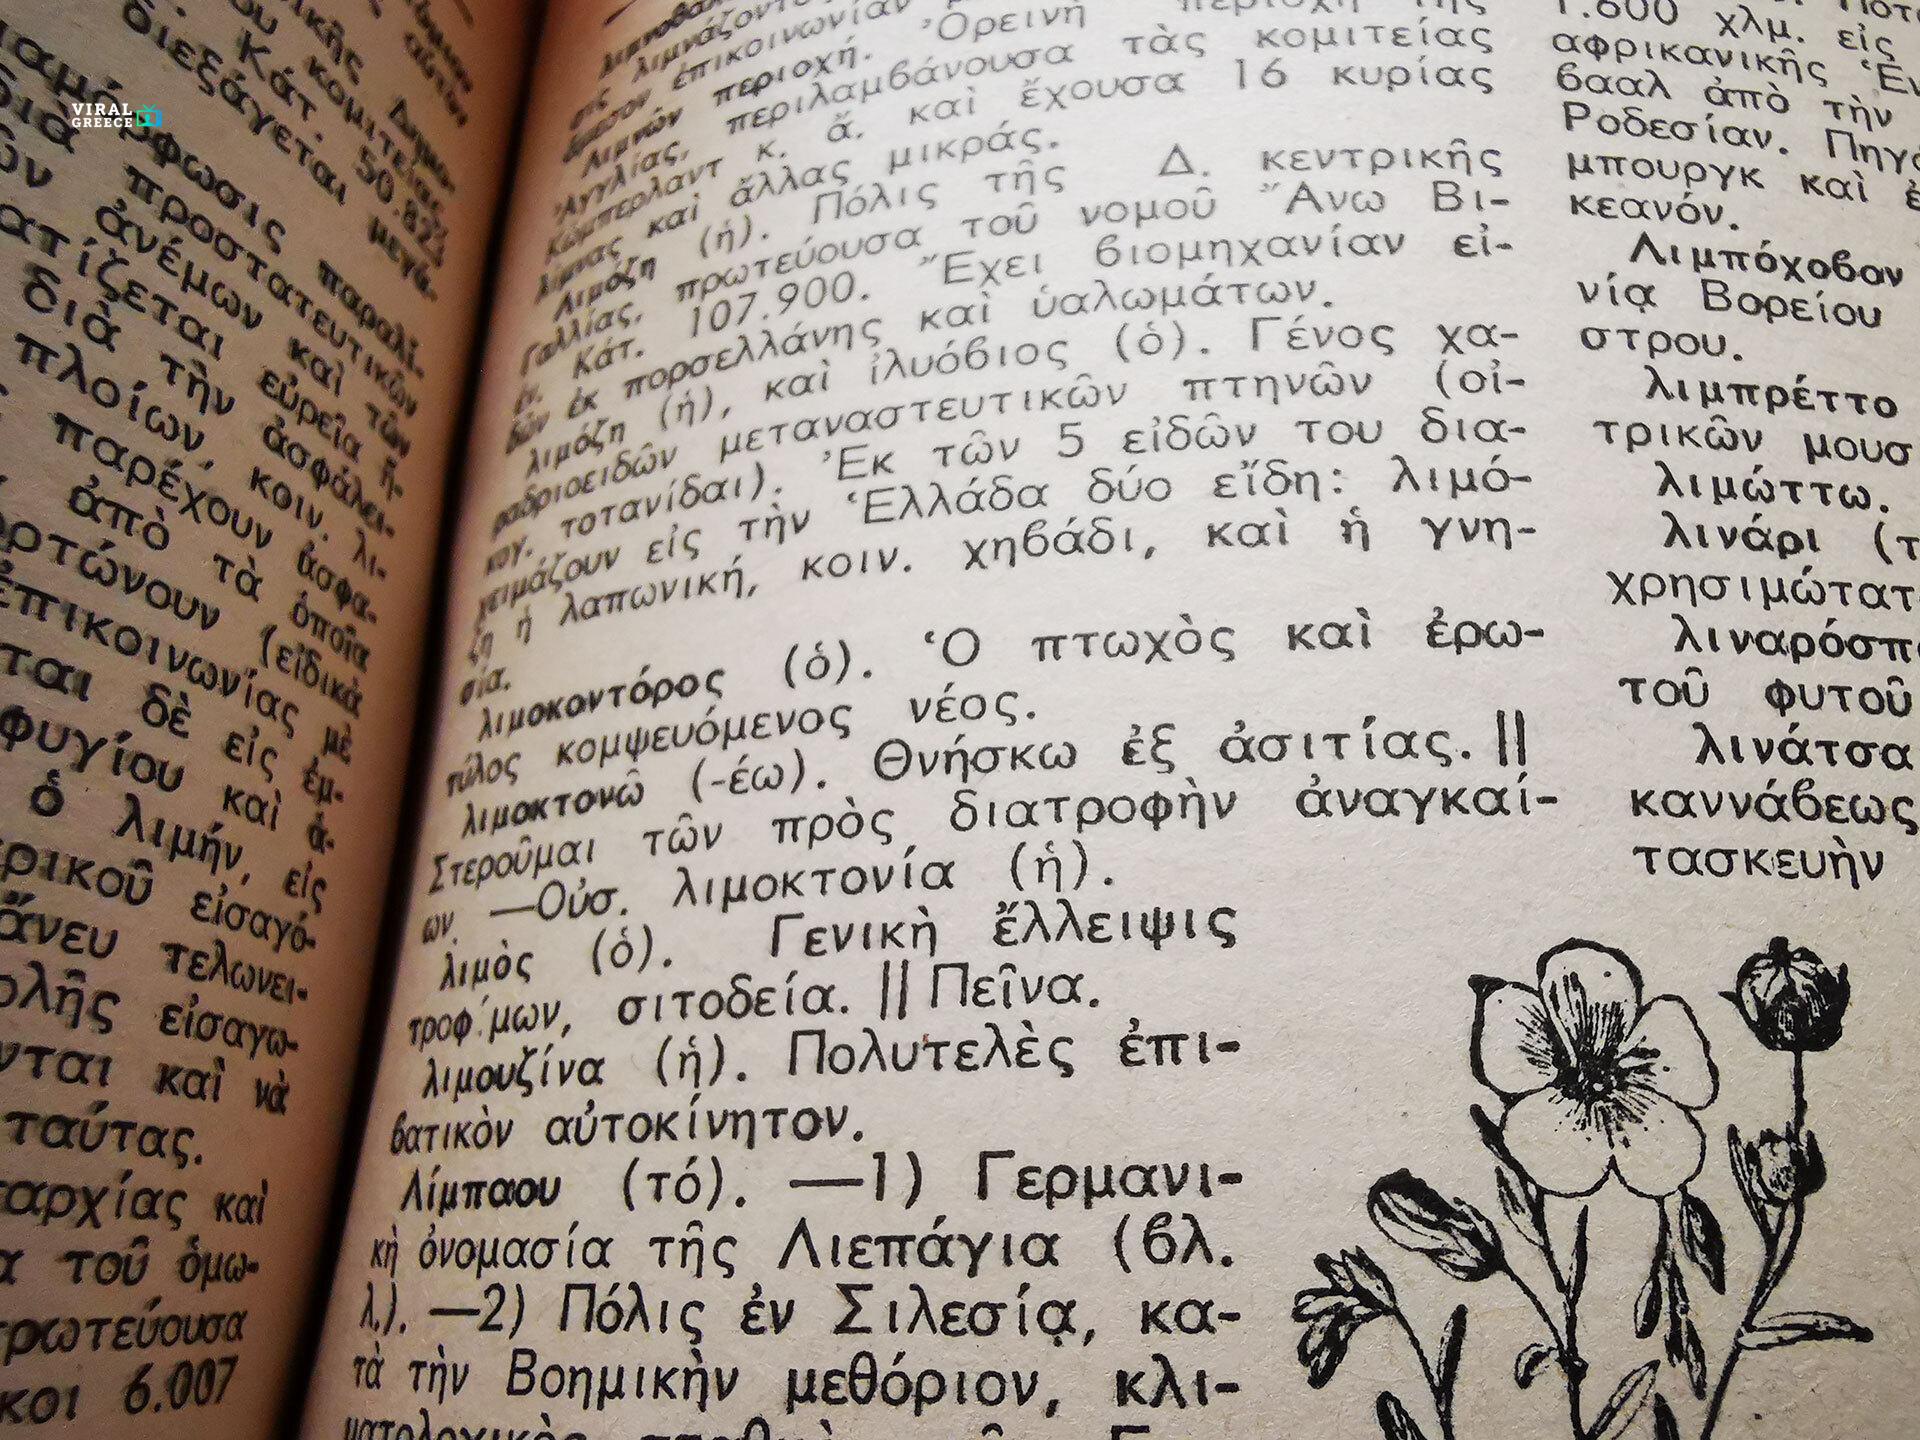 VIRAL
GREECE
Κάτ. 50.823
διεξάγεται μεγά-
παραλί-
προστατευτικῶν
ἀνέμων καὶ τῶν
εὐρεῖα ἤ-
διὰ τὴν ἀσφάλει-
πλοίων, κοιν. λι-
παρέχουν ἀσφα-
ἀπὸ τὰ ὁποῖα
(εἰδικὰ
ἐπικοινωνίας μὲ
ται δὲ εἰς ἐμ-
καὶ ἁ-
ὁ λιμήν, εἰς
εἰσαγό-
ἄνευ τελωνει-
εἰσαγω-
νται καὶ νὰ
ταύτας.
καὶ
τοῦ ὁμω-
πρωτεύουσα
κοι 6.007
λιμνάζοντα
ἐπικοινωνίαν
Λιμνῶν περιοχή. Ὀρεινὴ περιοχὴ τῆς
Ἀγγλίας, περιλαμβάνουσα τὰς κομιτείας
Κώμπερλαντ κ. ἄ. καὶ ἔχουσα 16 κυρίας
λίμνας καὶ ἄλλας μικράς.
Λιμόζη (ἡ). Πόλις τῆς Δ. κεντρικῆς
Γαλλίας, πρωτεύουσα τοῦ νομοῦ Ἄνω Βι-
έν. Κάτ. 107.900. Ἔχει βιομηχανίαν εἰ-
δῶν ἐκ πορσελλάνης καὶ ὑαλωμάτων.
λιμόζη (ἡ), καὶ ἰλυόβιος (ὁ). Γένος χα-
ραδριοειδῶν μεταναστευτικῶν πτηνῶν (οἰ-
κογ. τοτανίδαι). Ἐκ τῶν 5 εἰδῶν του δια-
χειμάζουν εἰς τὴν Ἑλλάδα δύο εἴδη: λιμό-
ζη ἡ λαπωνική, κοιν. χηβάδι, καὶ ἡ γνη-
σία.
λιμοκοντόρος (ὁ). Ὁ πτωχὸς καὶ ἐρω-
τύλος κομψευόμενος νέος.
λιμοκτονῶ (-έω). Θνήσκω ἐξ ἀσιτίας. ||
Στεροῦμαι τῶν πρὸς διατροφὴν ἀναγκαί-
ων. —Οὐσ. λιμοκτονία (ἡ).
λιμὸς (ὁ). Γενικὴ ἔλλειψις
τροφίμων, σιτοδεία. || Πεῖνα.
λιμουζίνα (ἡ). Πολυτελὲς ἐπι-
βατικὸν αὐτοκίνητον.
Λίμπαου (τό). —1) Γερμανι-
κὴ ὀνομασία τῆς Λιεπάγια (βλ.
λ.). —2) Πόλις ἐν Σιλεσίᾳ, κα-
τὰ τὴν Βοημικὴν μεθόριον, κλι-
1.600 χλμ. εἰς
ἀφρικανικῆς Ἑν
βααλ ἀπὸ τὴν
Ροδεσίαν. Πηγά
μπουργκ καὶ ἐ
κεανόν.
Λιμπόχοβον
νίᾳ Βορείου
στρου.
λιμπρέττο
τρικῶν μουσ
λιμώττω.
λινάρι (τ
χρησιμώτατ
λιναρόσπ
τοῦ φυτοῦ
λινάτσα
καννάβεως
τασκευὴν